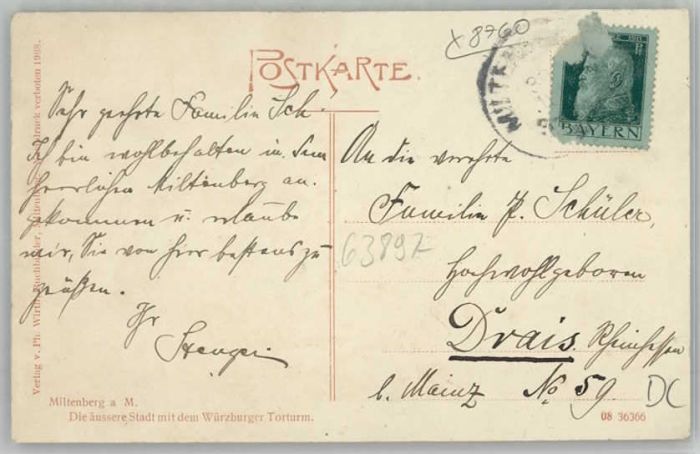 x 8760
POSTKARTE.
MILTE
BAYERN
Sehr geehrte Familie Sch.!
Ich bin wohlbehalten in dem
herrlichen Miltenberg an-
gekommen u. erlaube
mir, Sie von hier bestens zu
grüßen.
Ihr
An die verehrte
Familie P. Schüler,
Hochwohlgeboren
Drais, Rheinhessen
b. Mainz No 59.
63897
DC
Verlag v. Ph. Wirth, Buchbinder, Miltenberg verboten 1908.
Miltenberg a M.
Die äussere Stadt mit dem Würzburger Torturm.
08 36366